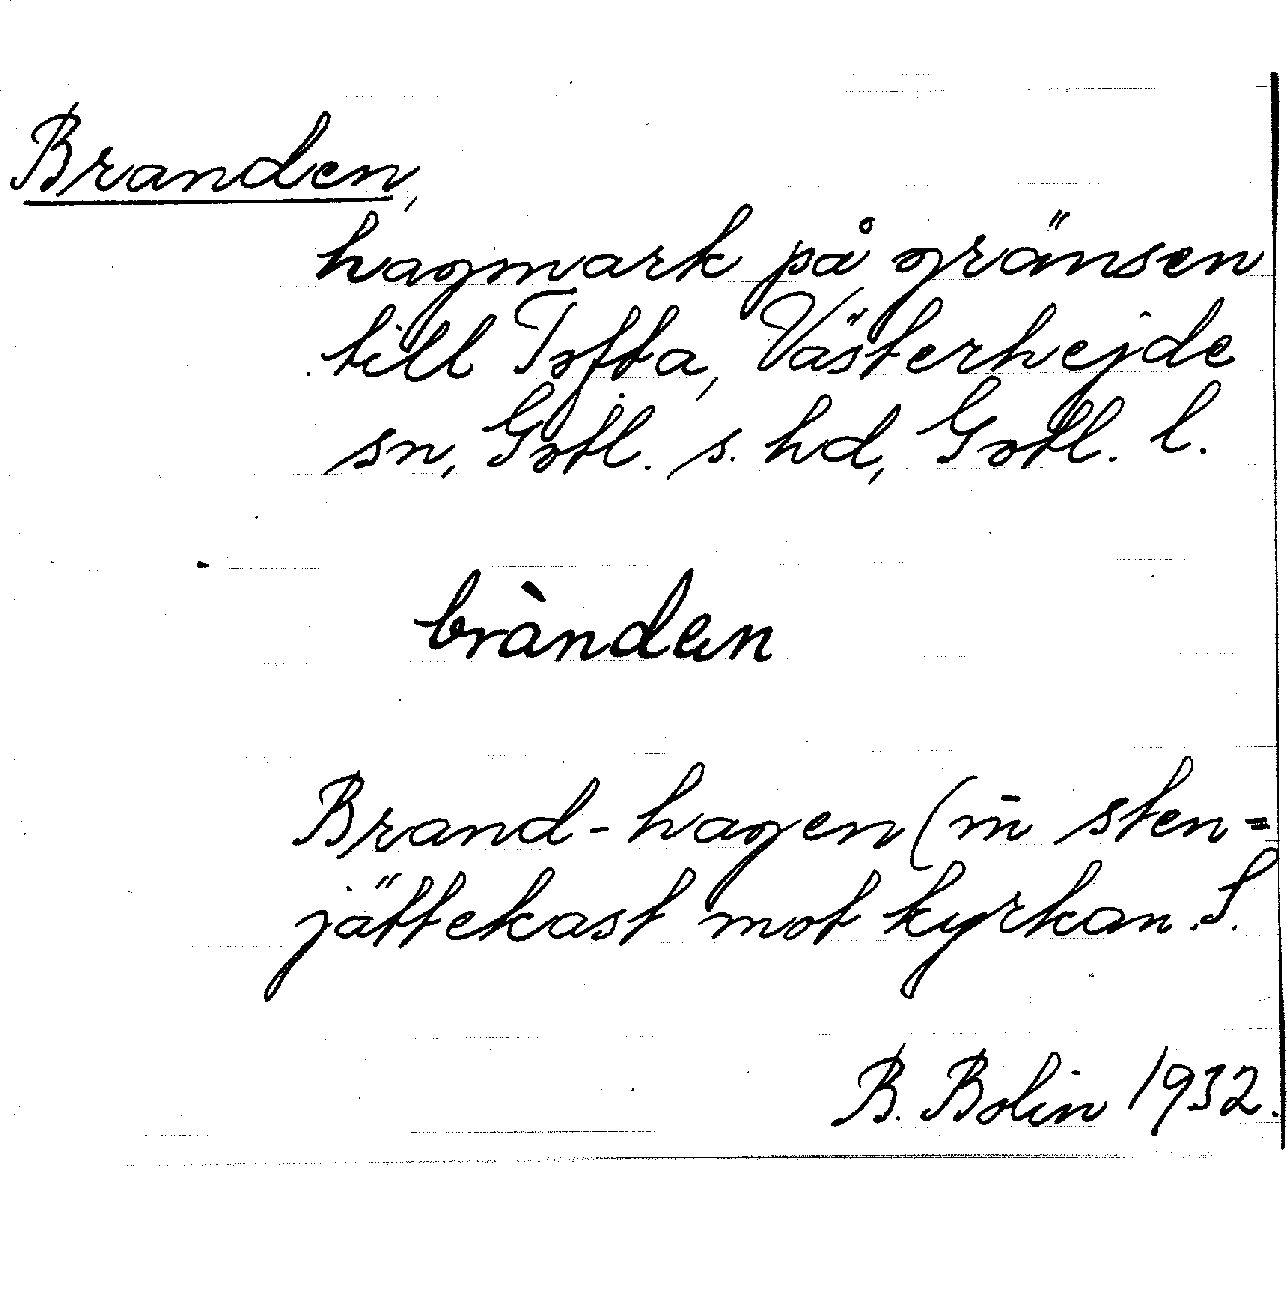 Branden,
hagmark på gränsen
till Tofta, Västerhejde
sn, Gotl. s. hd, Gotl. l.
bràndan
Brand-hagen (m̄ sten=
jättekast mot kyrkan. S.
B. Bolin 1932.